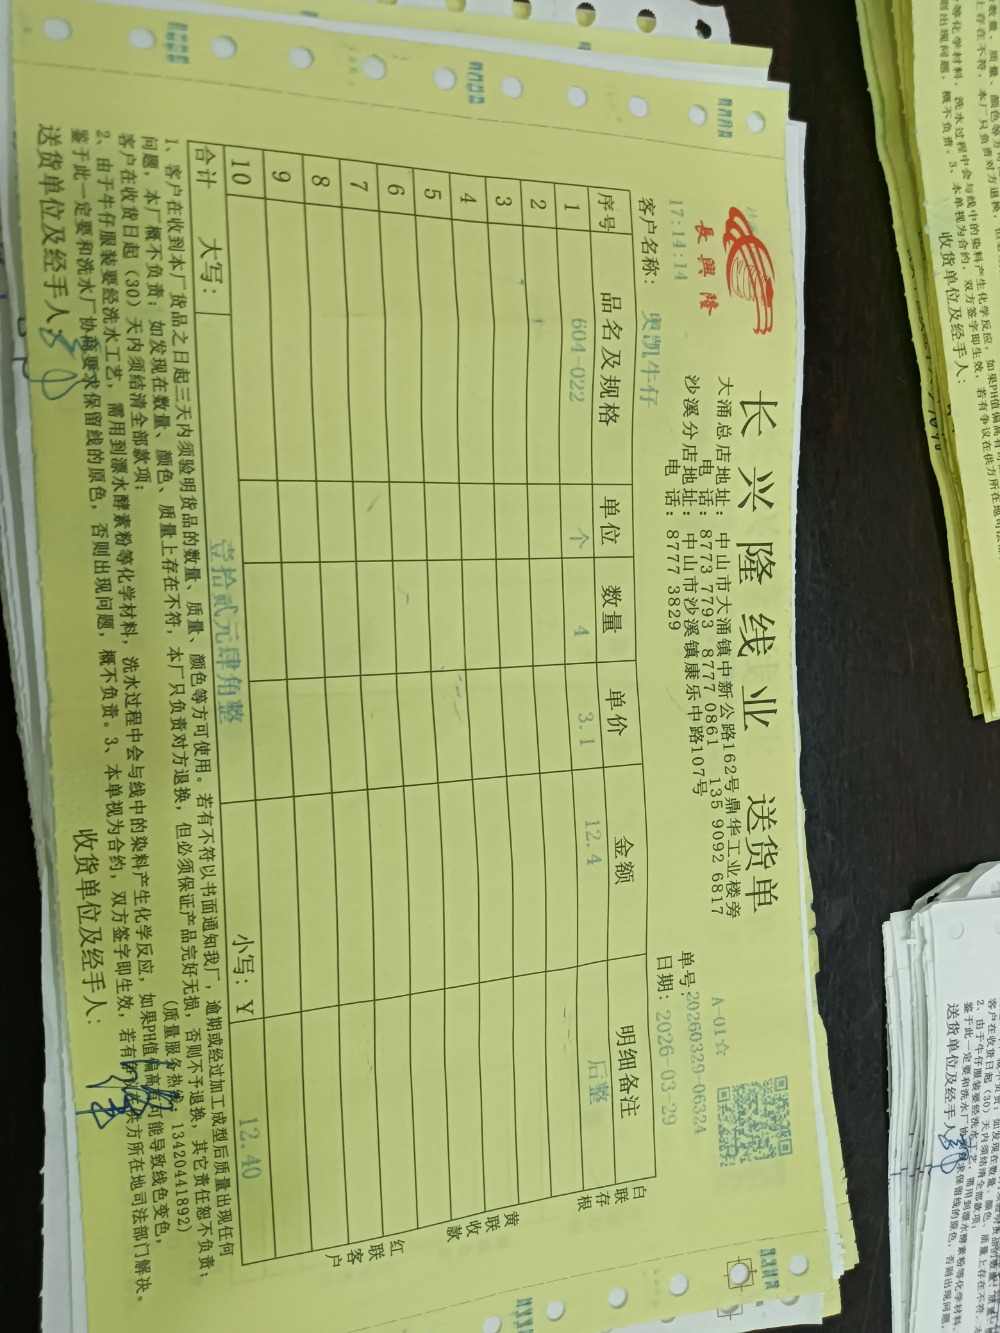 長興隆
长兴隆线业 送货单
大涌总店地址：中山市大涌镇中新公路162号鼎华工业楼旁
电话：8773 7793 8777 0861 135 9092 6817
沙溪分店地址：中山市沙溪镇康乐中路107号
电话：8777 3829
A-01☆
单号：20260329-06324
17:14:14
日期：2026-03-29
客户名称：奥凯牛仔
序号 品名及规格 单位 数量 单价 金额 明细备注
1 604-022 个 4 3.1 12.4 后整
2
3
4
5
6
7
8
9
10
合计 大写：壹拾贰元肆角整 小写：Y 12.40
白联存根
黄联收款
红联客户
1、客户在收到本厂货品之日起三天内须验明货品的数量、质量、颜色等方可使用。若有不符以书面通知我厂，逾期或经过加工成型后质量出现任何
问题，本厂概不负责；如发现在数量、颜色、质量上存在不符，本厂只负责对方退换，但必须保证产品完好无损，否则不予退换，其它责任恕不负责；
客户在收货日起（30）天内须结清全部款项； （质量服务热线：13420441892）
2、由于牛仔服装要经洗水工艺，需用到漂水酵素粉等化学材料，洗水过程中会与线中的染料产生化学反应，如果PH值偏高可能导致线色变色，
鉴于此一定要和洗水厂协商要求保留线的原色，否则出现问题，概不负责。3、本单视为合约，双方签字即生效，若有争议在供方所在地司法部门解决。
送货单位及经手人： 收货单位及经手人：
收货单位及经手人：
送货单位及经手人